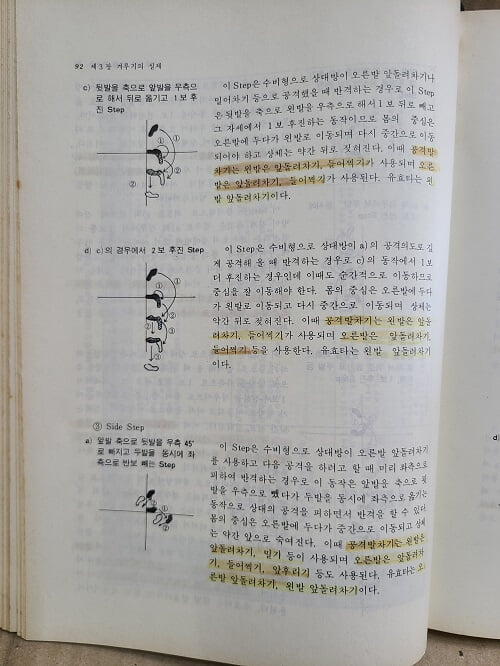 92 제 3 장 겨루기의 실제
c) 뒷발을 축으로 앞발을 우측으
로 해서 뒤로 옮기고 1보 후
진 Step
이 Step은 수비형으로 상대방이 오른발 앞돌려차기나
밀어차기 등으로 공격했을 때 반격하는 경우로 이 Step
은 뒷발을 축으로 왼발을 우측으로 해서 1보 뒤로 빼고
그 자세에서 1보 후진하는 동작이므로 몸의 중심은
오른발에 두다가 왼발로 이동되며 다시 중간으로 이동
되어야 하고 상체는 약간 뒤로 젖혀진다. 이때 공격발
차기는 왼발은 앞돌려차기, 들어찍기가 사용되며 오른
발은 앞돌려차기, 들어찍기가 사용된다. 유효타는 왼
발 앞돌려차기이다.
①
①
②
②
d) c)의 경우에서 2보 후진 Step
이 Step은 수비형으로 상대방이 a)의 공격의도로 깊
게 공격해 올 때 반격하는 경우로 c)의 동작에서 1보
더 후진하는 경우인데 이때도 순간적으로 이동하므로
중심을 잘 이동해야 한다. 몸의 중심은 오른발에 두다
가 왼발로 이동되고 다시 중간으로 이동되며 상체는
약간 뒤로 젖혀진다. 이때 공격발차기는 왼발은 앞돌
려차기, 들어찍기가 사용되며 오른발은 앞돌려차기,
들어찍기 등을 사용한다. 유효타는 왼발 앞돌려차기
이다.
①
②
②
③
③
③ Side Step
a) 앞발 축으로 뒷발을 우측 45°
로 빠지고 두발을 동시에 좌
측으로 반보 빼는 Step
이 Step은 수비형으로 상대방이 오른발 앞돌려차기
를 사용하고 다음 공격을 하려고 할 때 미리 좌측으로
피하여 반격하는 경우로 이 동작은 앞발을 축으로 뒷
발을 우측으로 뺐다가 두발을 동시에 좌측으로 옮기는
동작으로 상대의 공격을 피하면서 반격을 할 수 있다.
몸의 중심은 오른발에 두다가 중간으로 이동되고 상체
는 약간 앞으로 숙여진다. 이때 공격발차기는 왼발은
앞돌려차기, 밀기 등이 사용되며 오른발은 앞돌려차
기, 들어찍기, 앞후리기 등도 사용된다. 유효타는 오
른발 앞돌려차기, 왼발 앞돌려차기이다.